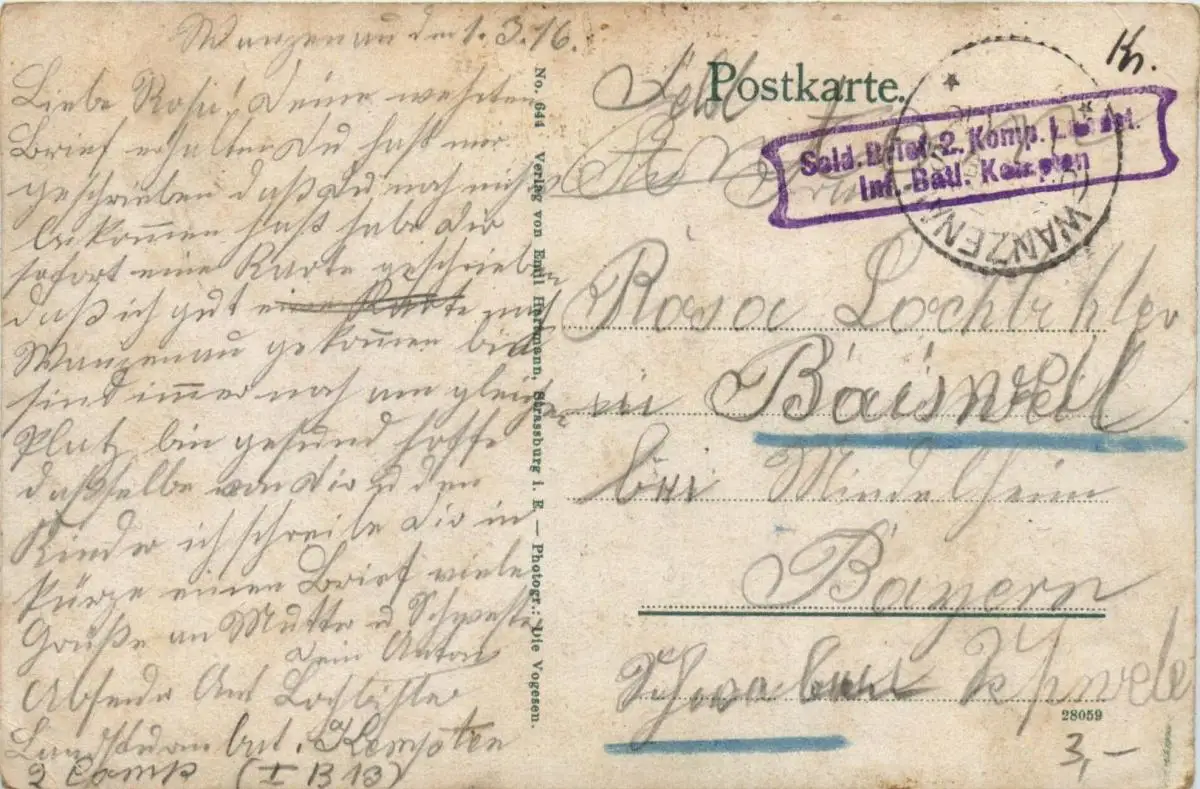 Wanzenau den 1. 3. 16.
Liebe Rosie! Deine wehrten
Brief erhalten Du hast mir
geschrieben daß Du noch nichts
bekommen hast habe Dir
sofort eine Karte geschrieben
daß ich gut nach
Wanzenau gekommen bin
sind immer noch am gleichen
Platz bin gesund hoffe
dasselbe von Dir u den
Kinder ich schreibe Dir in
kürze einen Brief viele
Grüße an Mutter u Schwester
Dein Anton
Absender Ant Lochbihler
Landsturm bat. Kempten
2 Comp (I B 13)
No. 644 Verlag von Emil Hartmann, Strassburg i. E. — Photogr.: Die Vogesen.
Postkarte.
Feld
Kr.
Sold.-Brief 2. Komp. Landst.
Inf.-Batl. Kempten
WANZENAU
Rosa Lochbihler
in Baisweil
bei Mindelheim
Bayern
Schwaben
28059
3,-